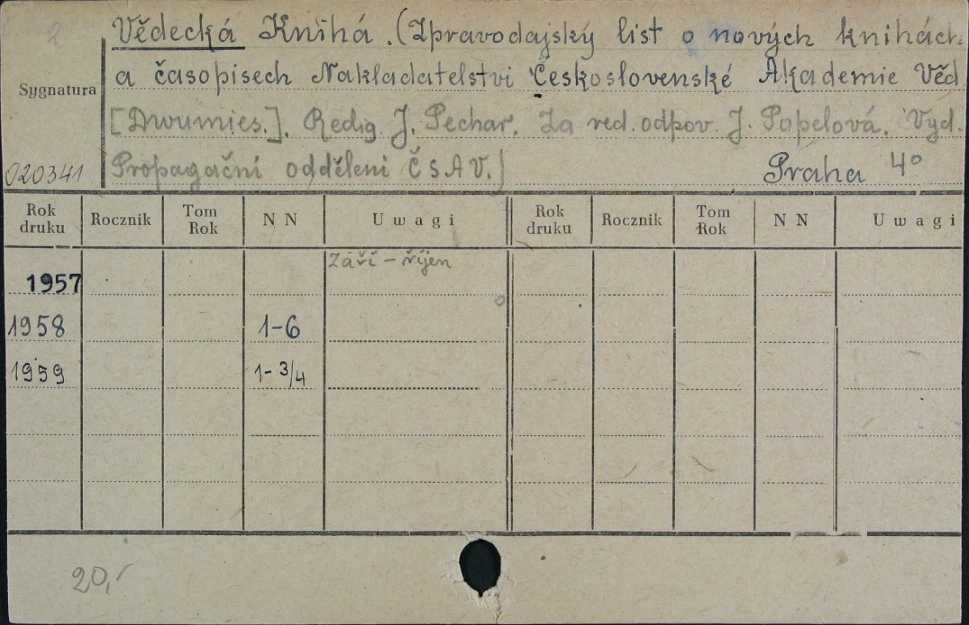 2
Vědecká Knihá. (Zpravodajský list o nových knihách
a časopisech Nakladatelstvi Československé Akademie Věd.
Sygnatura
[Dwumies.]. Redig J. Pechar. Za red. odpov. J. Popelová. Vyd.
020341 Propagační oddĕleni ČSAV.) Praha 4°
Rok druku Rocznik Tom Rok N N Uwagi Rok druku Rocznik Tom Rok N N Uwagi
1957 Září - říjen
1958 1-6
1959 1-3/4
20,-